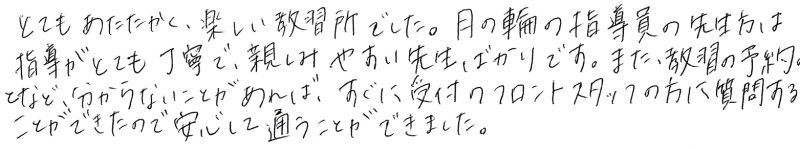 とてもあたたかく、楽しい教習所でした。月の輪の指導員の先生方は
指導がとても丁寧で、親しみやすい先生ばかりです。また、教習の予約の
となど、分からないことがあれば、すぐに受付のフロントスタッフの方に質問する
ことができたので安心して通うことができました。